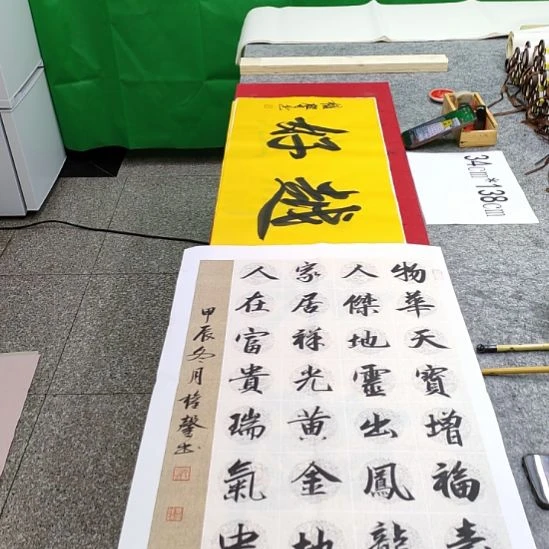 越好
34cm*138cm
物華天寶增福
人傑地靈出鳳龍
家居祥光黃金地
人在富貴瑞氣中
甲辰冬月 馨书